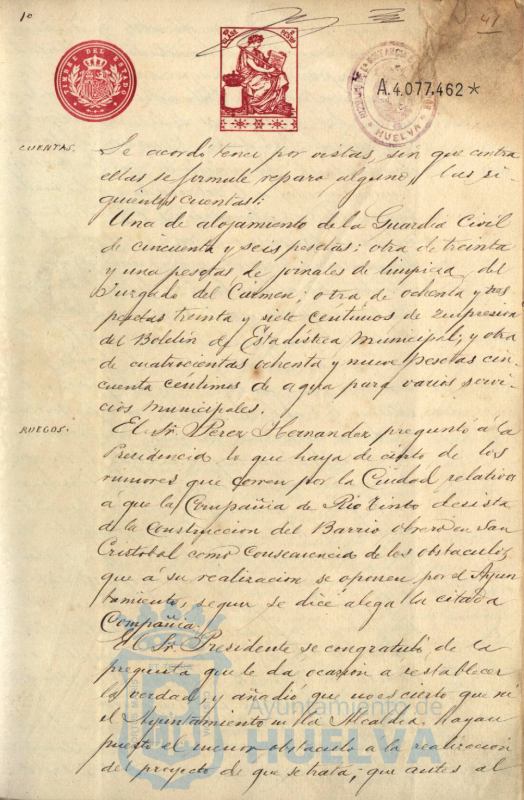 1º
41
TIMBRE DEL ESTADO
A.4.077.462*
HUELVA
CUENTAS.
Se acordó tener por vistas, sin que contra
ellas se formule reparo alguno, las si-
guientes cuentas:
Una de alojamiento de la Guardia Civil
de cincuenta y seis pesetas; otra de treinta
y una pesetas de jornales de limpieza del
Juzgado del Carmen; otra de ochenta y tres
pesetas treinta y siete céntimos de impresión
del Boletín de Estadística Municipal; y otra
de cuatrocientas ochenta y nueve pesetas cin
cuenta céntimos de agua para varios servi-
cios municipales.
RUEGOS.
El Sr. Perez Hernandez preguntó á la
Presidencia lo que haya de cierto de los
rumores que corren por la Ciudad relativa
á que la Compañia de Rio Tinto desista
de la construccion del Barrio obrero en San
Cristobal como consecuencia de los obstaculos
que á su realizacion se oponen por el Ayun
tamiento, segun se dice alega la citada
Compañia.
El Sr. Presidente se congratuló de la
pregunta que le da ocasion a restablecer
la verdad y añadió que no es cierto que ni
el Ayuntamiento ni la Alcaldia hayan
puesto el menor obstaculo a la realizacion
del proyecto de que se trata; que antes al
Ayuntamiento de
HUELVA